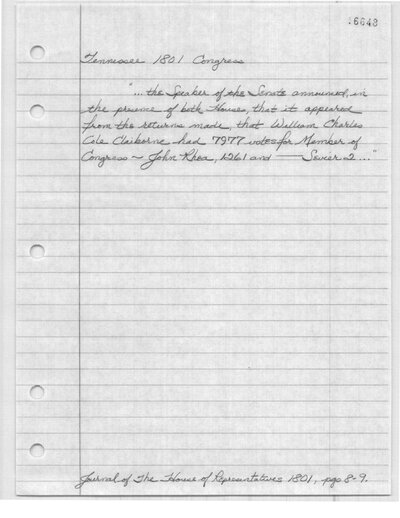 16648
Tennessee 1801 Congress
"... the Speaker of the Senate announced, in
the presence of both Houses, that it appeared
from the returns made, that William Charles
Cole Claiborne had 7977 votes for Member of
Congress ~ John Rhea, 1261 and —— Sevier 2 ..."
Journal of The House of Representatives 1801, pgs 8-9.